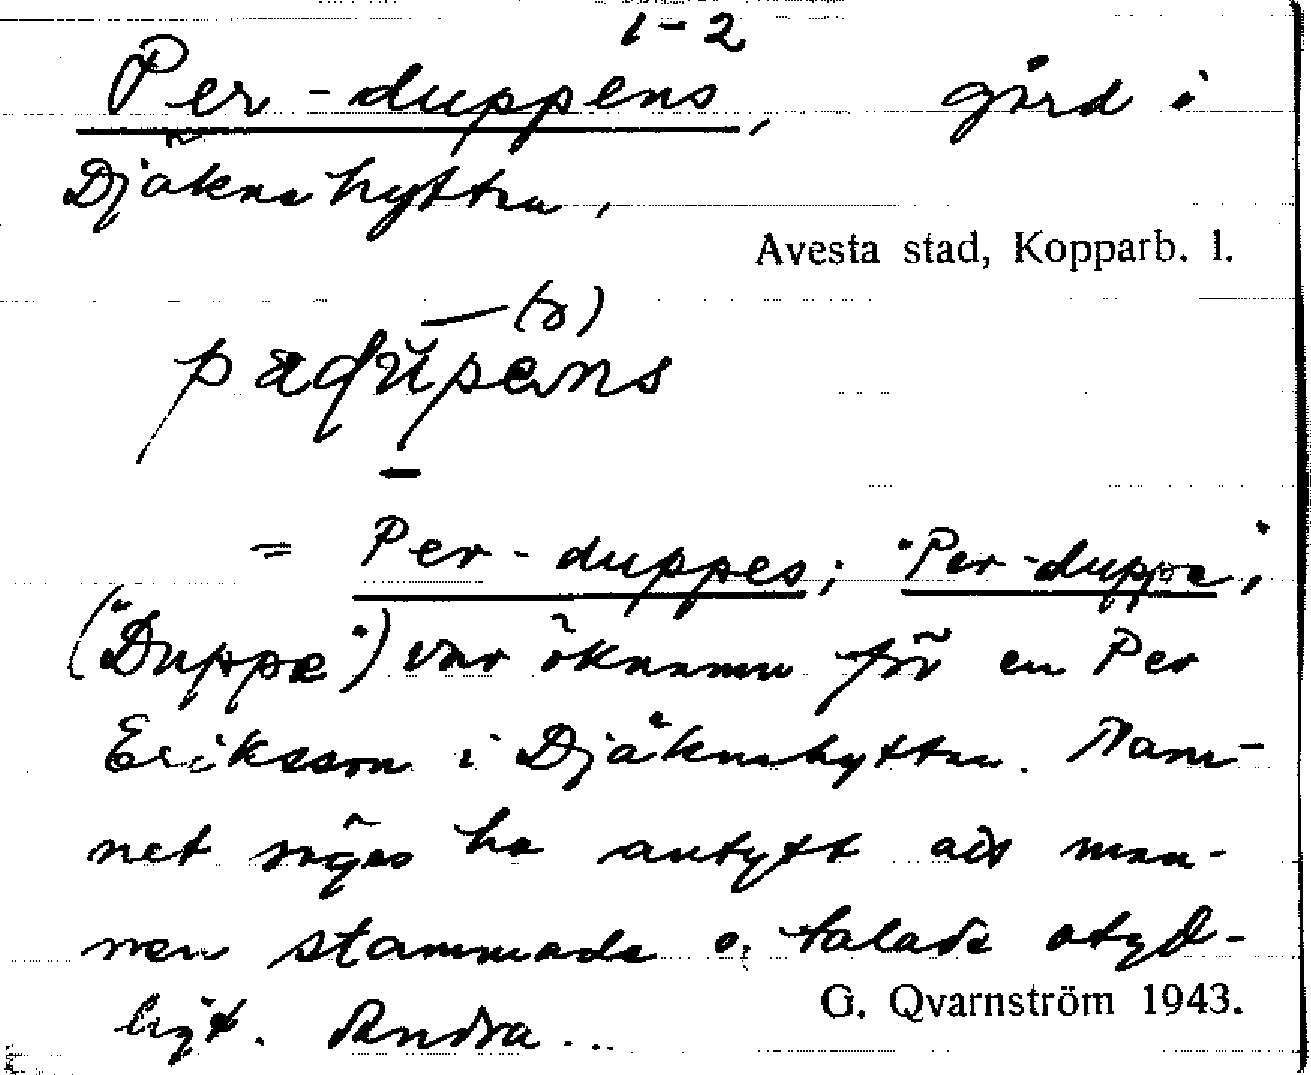 1-2
Per-duppens, gård i
Djäknehyttan,
Avesta stad, Kopparb. l.
= Per-duppes; "Per-duppe",
("Duppe") var öknamn för en Per
Eriksson i Djäknehyttan. Nam-
net säges ha antytt att man-
nen stammade o. talade otyd-
ligt. Andra...
G. Qvarnström 1943.